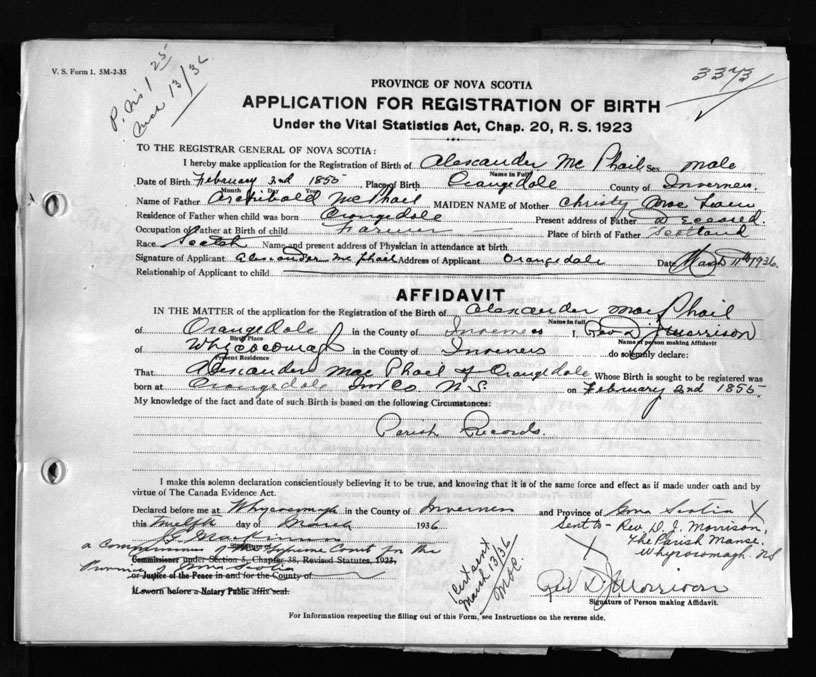 V. S. Form 1. 5M-2-35
25
Mar 13/36
3373
PROVINCE OF NOVA SCOTIA
APPLICATION FOR REGISTRATION OF BIRTH
Under the Vital Statistics Act, Chap. 20, R. S. 1923
TO THE REGISTRAR GENERAL OF NOVA SCOTIA:
I hereby make application for the Registration of Birth of Alexander Mc Phail Sex male
Name in Full
Date of Birth February 2nd 1855 Place of Birth Orangedale County of Inverness.
Month Day Year
Name of Father Archibald McPhail MAIDEN NAME of Mother Christy Mac Lean
Residence of Father when child was born Orangedale Present address of Father Deceased.
Occupation of Father at Birth of child Farmer Place of birth of Father Scotland
Race Scotch Name and present address of Physician in attendance at birth
Signature of Applicant Alexander Mc Phail Address of Applicant Orangedale Date March 11th 1936.
Relationship of Applicant to child
AFFIDAVIT
IN THE MATTER of the application for the Registration of the Birth of Alexander MacPhail
Name in full
of Orangedale in the County of Inverness I, Rev D J Morrison
Birth Place Name of person making Affidavit
of Whycocomagh in the County of Inverness do solemnly declare:
Present Residence
That Alexander Mac Phail of Orangedale Whose Birth is sought to be registered was
born at Orangedale Inv Co. N.S. on February 2nd 1855.
My knowledge of the fact and date of such Birth is based on the following Circumstances:
Parish Records.
I make this solemn declaration conscientiously believing it to be true, and knowing that it is of the same force and effect as if made under oath and by
virtue of The Canada Evidence Act.
Declared before me at Whycocomagh in the County of Inverness and Province of Nova Scotia X
this twelfth day of March 1936 Sent to - Rev. D. J. Morrison,
J.G. MacKinnon The Parish Manse,
a Commissioner of Supreme Court for the X Whycocomagh. NS
Commissioner under Section 5, Chapter 38, Revised Statutes, 1923,
Province of Nova Scotia
or Justice of the Peace in and for the County of
If sworn before a Notary Public affix seal.
Cert sent
March 13/36
Rev D J Morrison
Signature of Person making Affidavit.
For Information respecting the filling out of this Form, see Instructions on the reverse side.